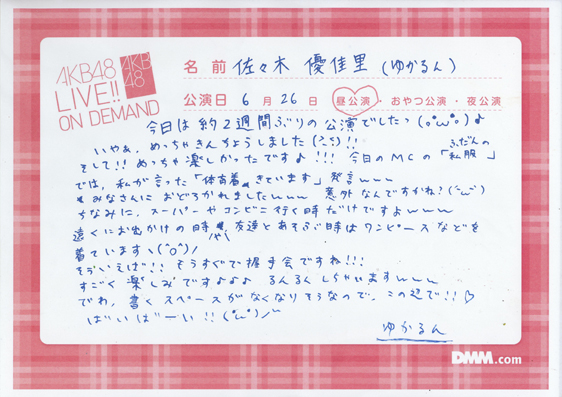 AKB48
LIVE!!
ON DEMAND
AKB
48
名前 佐々木 優佳里 (ゆかるん)
公演日 6月26日 昼公演・おやつ公演・夜公演
今日は約2週間ぶりの公演でしたっ(。°ω°。)♪
いやぁ、めっちゃきんちょうしました(>_<)!!
そして!! めっちゃ楽しかったですよ!!! 今日のMCの「ふだんの私服」
では、私が言った「体育着、きています」発言www
みなさんにおどろかれましたwww 意外なんですかね?(˘ω˘)
ちなみに、スーパーやコンビニ行く時だけですよwww
遠くにお出かけの時や、友達とあそぶ時はワンピースなどを
着ていますヽ(^o^)ノ
そういえば!! もうすぐで握手会ですね!!!
すごく楽しみですよよよ るんるんしちゃいますwww
でわ、書くスペースがなくなりそうなので、この辺で!!♡
ばいばーい!!(°ω°)ノ~
ゆかるん
DMM.com